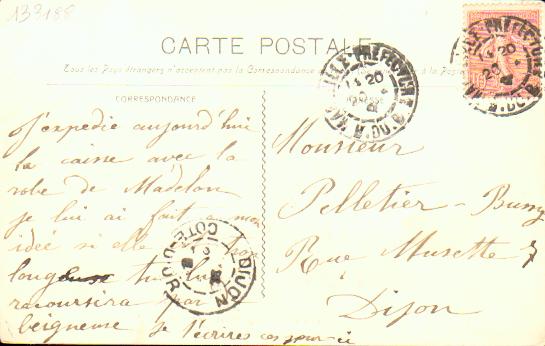 133188
CARTE POSTALE
Tous les Pays étrangers n'acceptent pas la Correspondance à la Poste
CORRESPONDANCE
J'expedie aujourd'hui
la caisse avec la
robe de Madelon
je lui ai fait a mon
idée si elle
long tu lui
racoursira par
beigneuse je t'écrires ces jour ci
Monsieur
Pelletier - Bussy
Rue Musette 7
Dijon
MARSEILLE-PREFECTURE
B. DU R.
20
DIJON
COTE-D'OR